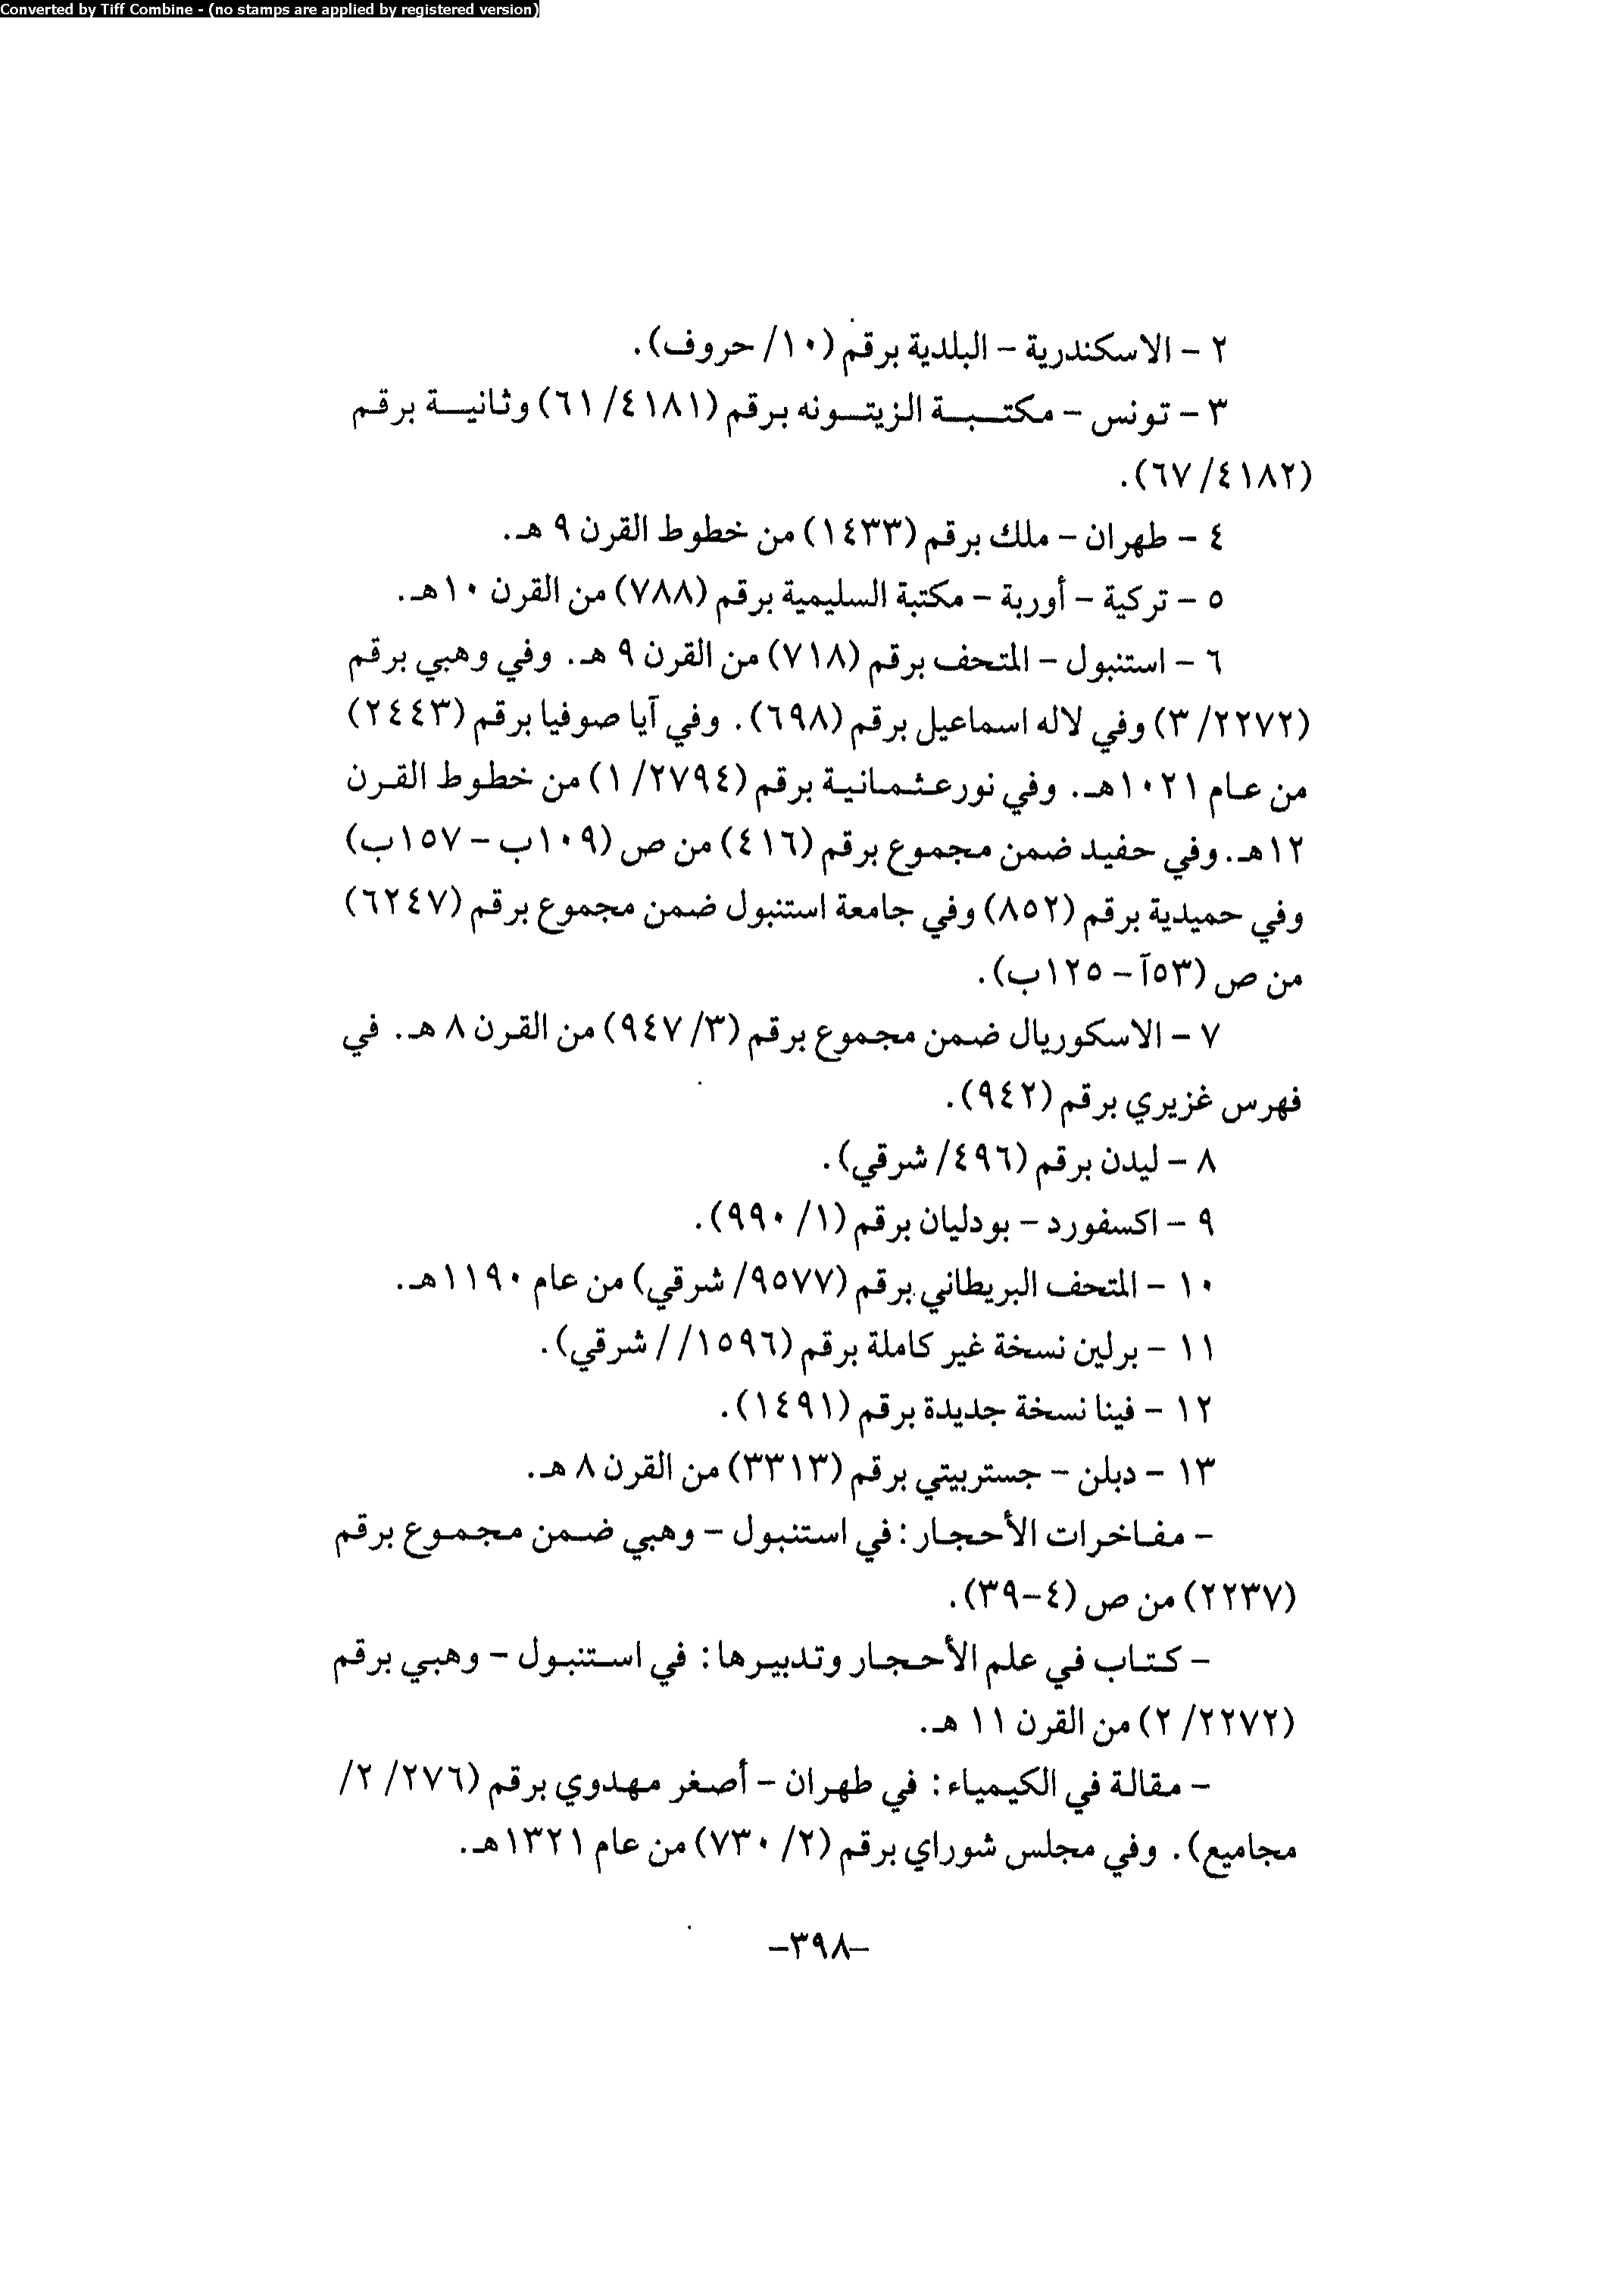 Converted by Tiff Combine - (no stamps are applied by registered version)
٢ - الاسكندرية - البلدية برقم (١٠/ حروف).
٣ - تونس - مكتبة الزيتونه برقم (٤١٨١/ ٦١) وثانية برقم
(٤١٨٢/ ٦٧).
٤ - طهران - ملك برقم (١٤٣٣) من خطوط القرن ٩ هـ.
٥ - تركية - أوربة - مكتبة السليمية برقم (٧٨٨) من القرن ١٠هـ.
٦ - استنبول - المتحف برقم (٧١٨) من القرن ٩ هـ. وفي وهبي برقم
(٢٢٧٢/ ٣) وفي لاله اسماعيل برقم (٦٩٨). وفي آيا صوفيا برقم (٢٤٤٣)
من عام ١٠٢١هـ. وفي نورعثمانية برقم (٢٧٩٤/ ١) من خطوط القرن
١٢هـ. وفي حفيد ضمن مجموع برقم (٤١٦) من ص (١٠٩ب - ١٥٧ب)
وفي حميدية برقم (٨٥٢) وفي جامعة استنبول ضمن مجموع برقم (٦٢٤٧)
من ص (٥٣آ - ١٢٥ب).
٧ - الاسكوريال ضمن مجموع برقم (٣/ ٩٤٧) من القرن ٨ هـ. في
فهرس غزيري برقم (٩٤٢).
٨ - ليدن برقم (٤٩٦/ شرقي).
٩ - اكسفورد - بودليان برقم (١/ ٩٩٠).
١٠ - المتحف البريطاني برقم (٩٥٧٧/ شرقي) من عام ١١٩٠هـ.
١١ - برلين نسخة غير كاملة برقم (١٥٩٦/ / شرقي).
١٢ - فينا نسخة جديدة برقم (١٤٩١).
١٣ - دبلن - جستربيتي برقم (٣٣١٣) من القرن ٨ هـ.
- مفاخرات الأحجار: في استنبول - وهبي ضمن مجموع برقم
(٢٢٣٧) من ص (٤-٣٩).
- كتاب في علم الأحجار وتدبيرها: في استنبول - وهبي برقم
(٢٢٧٢/ ٢) من القرن ١١ هـ.
- مقالة في الكيمياء: في طهران - أصغر مهدوي برقم (٢٧٦/ ٢/
مجاميع). وفي مجلس شوراي برقم (٢/ ٧٣٠) من عام ١٣٢١هـ.
-٣٩٨-